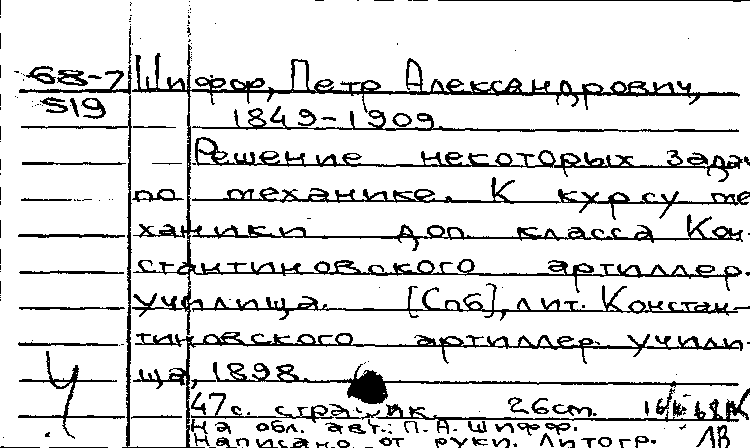 68-7 Шифф, Петр Александрович,
519 1849-1909.
Решение некоторых задач
по механике. К курсу ме
ханики доп. класса Кон-
стантиновского артиллер.
училища. [Спб], лит. Констан-
тиновского артиллер. учили-
ща, 1898.
47 с. 26 cm.
На обл. авт.: П. А. Шифф.
Написано от руки. Литогр. 18